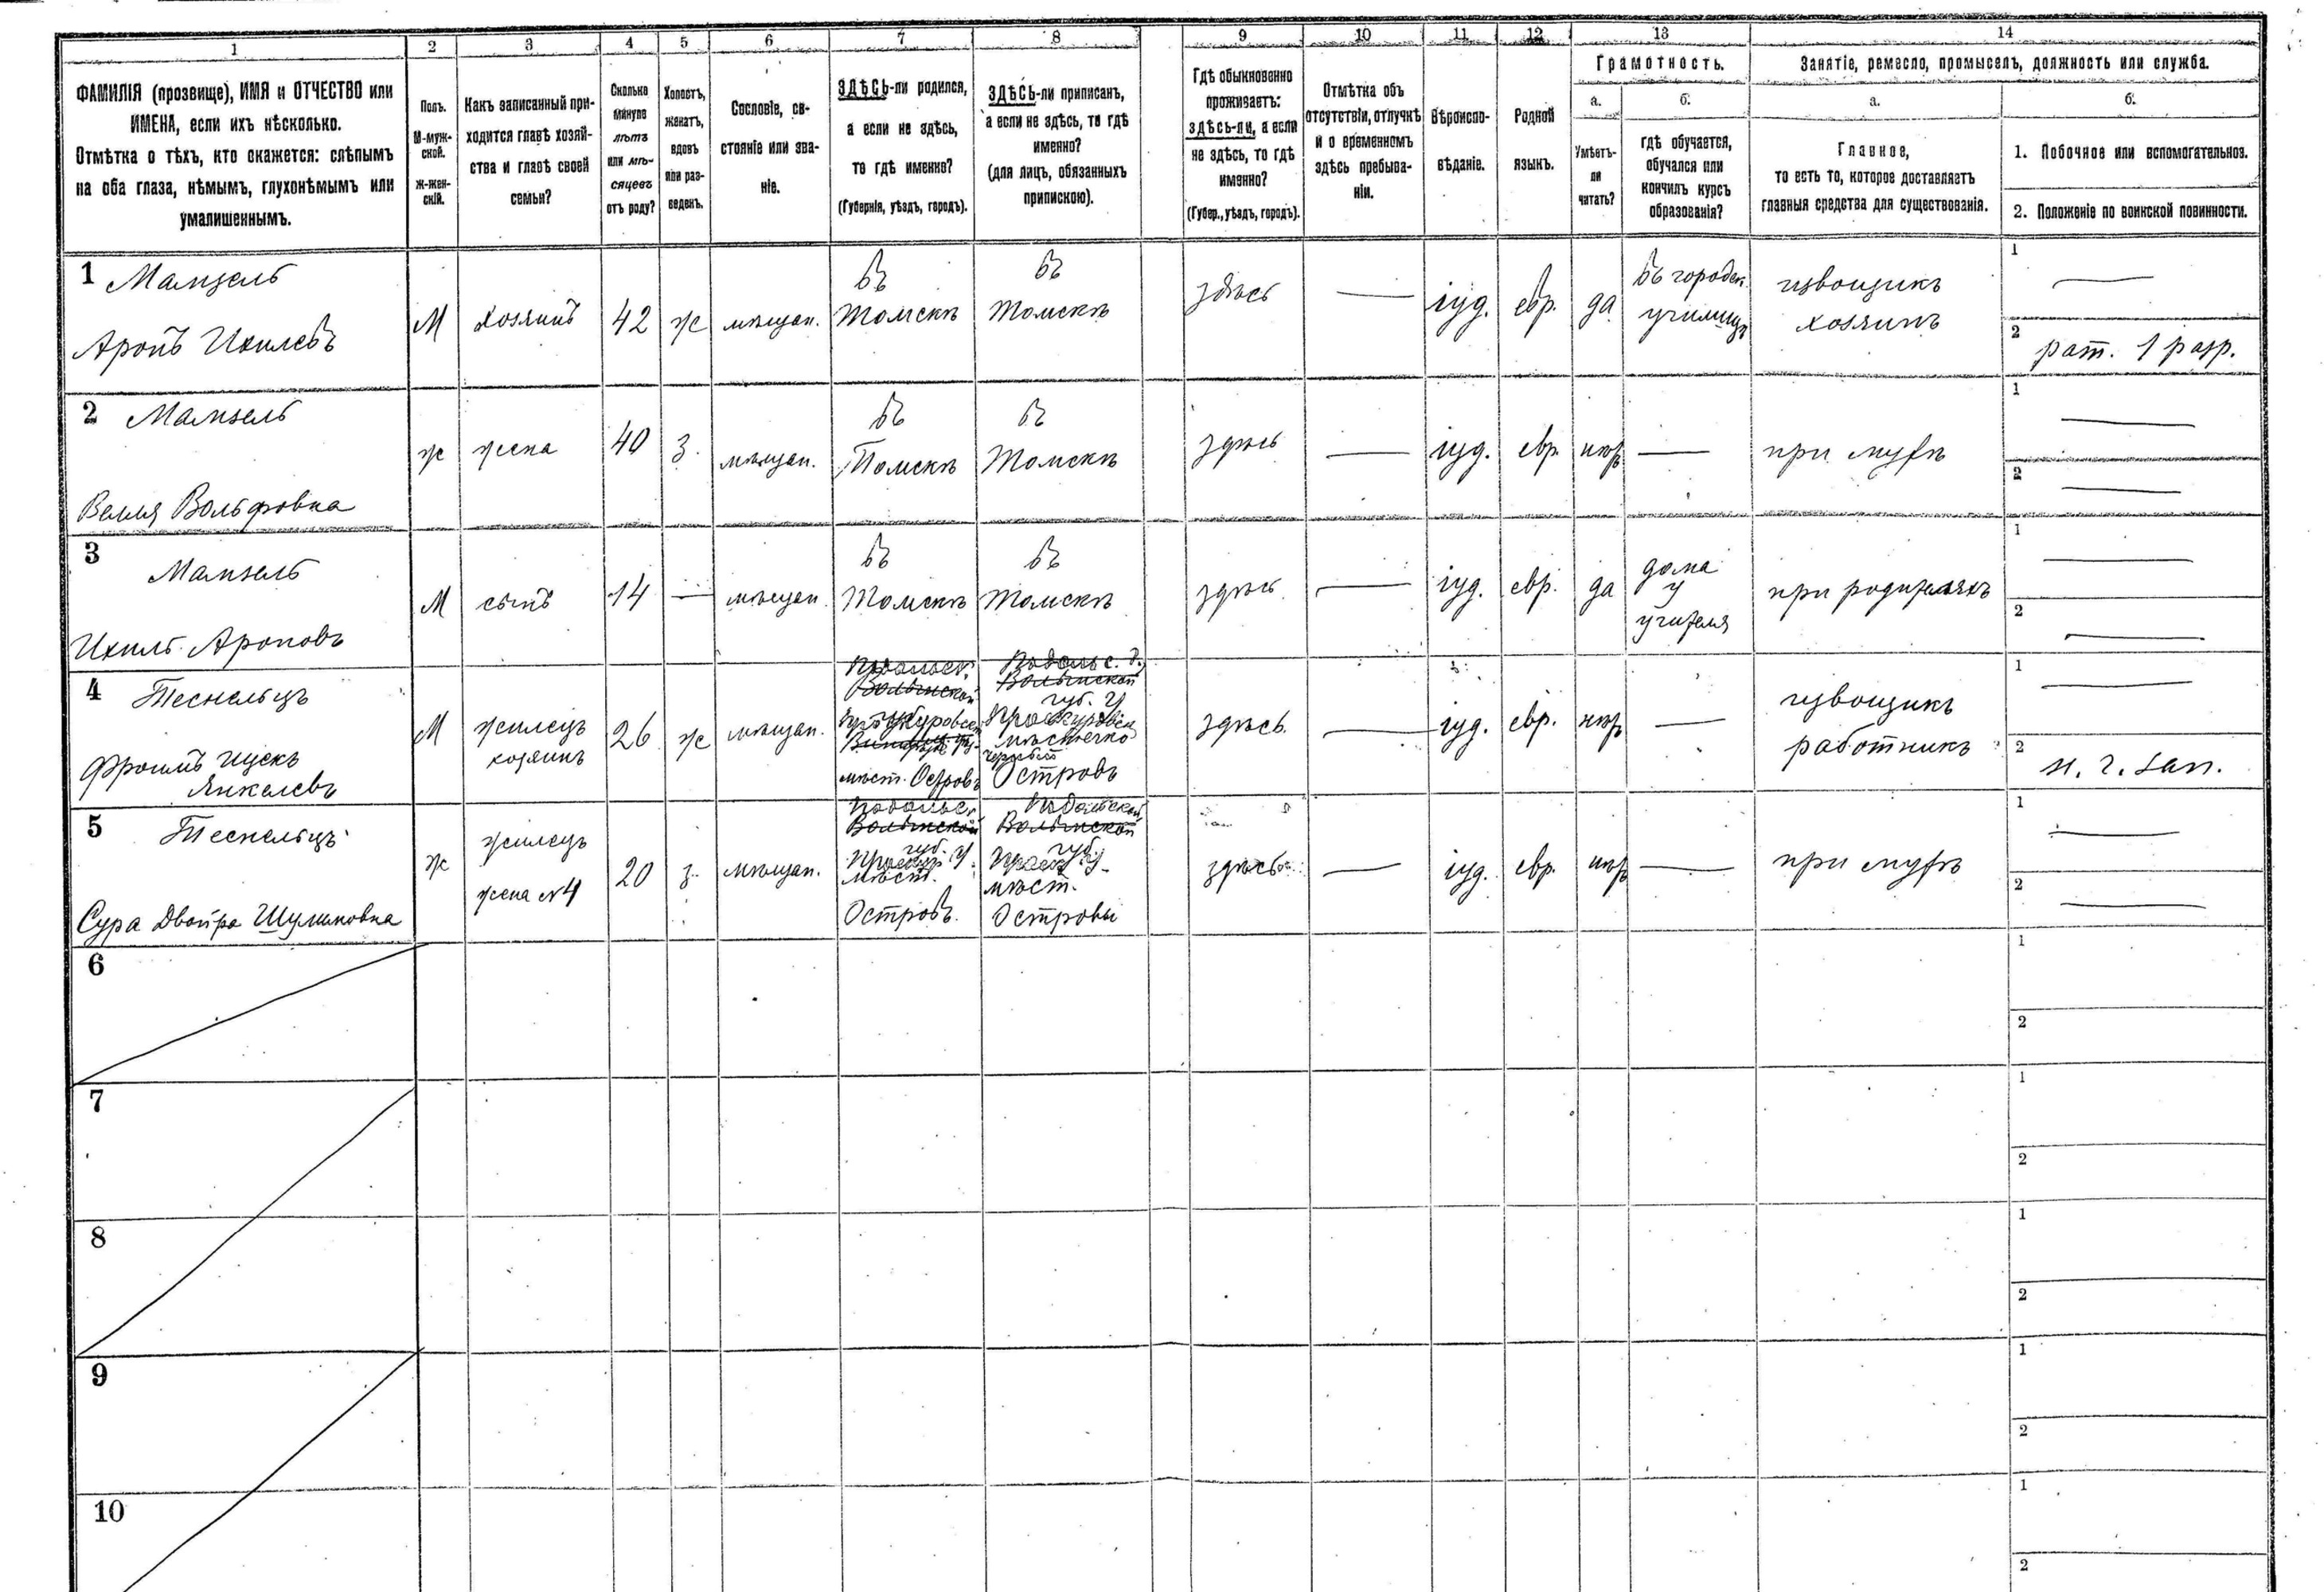 1
2
3
4
5
6
7
8
9
10
11
12
13
14
ФАМИЛІЯ (прозвище), ИМЯ и ОТЧЕСТВО или
ИМЕНА, если ихъ нѣсколько.
Отмѣтка о тѣхъ, кто окажется: слѣпымъ
на оба глаза, нѣмымъ, глухонѣмымъ или
умалишеннымъ.
Полъ.
М-муж-
ской.
Ж-жен-
скій.
Какъ записанный при-
ходится главѣ хозяй-
ства и главѣ своей
семьи?
Сколько
минуло
лѣтъ
или мѣ-
сяцевъ
отъ роду?
Холостъ,
женатъ,
вдовъ
или раз-
веденъ.
Сословіе, со-
стояніе или зва-
ніе.
ЗДѢСЬ-ли родился,
а если не здѣсь,
то гдѣ именно?
(Губернія, уѣздъ, городъ).
ЗДѢСЬ-ли приписанъ,
а если не здѣсь, то гдѣ
именно?
(для лицъ, обязанныхъ
припискою).
Гдѣ обыкновенно
проживаетъ:
здѣсь-ли, а если
не здѣсь, то гдѣ
именно?
(Губер., уѣздъ, городъ).
Отмѣтка объ
отсутствіи, отлучкѣ
и о временномъ
здѣсь пребыва-
ніи.
Вѣроиспо-
вѣданіе.
Родной
языкъ.
Грамотность.
а.
Умѣетъ-
ли
читать?
б.
гдѣ обучается,
обучался или
кончилъ курсъ
образованія?
Занятіе, ремесло, промыселъ, должность или служба.
а.
Главное,
то есть то, которое доставляетъ
главныя средства для существованія.
б.
1. Побочное или вспомогательное.
2. Положеніе по воинской повинности.
1 Мамзель
Аронъ Ихилевъ
М
хозяинъ
42
ж
мѣщан.
въ
Томскѣ
въ
Томскѣ
здѣсь
—
іуд.
евр.
да
въ городск.
училищѣ
извощикъ
хозяинъ
1
—
2
рат. 1 разр.
2 Мамзель
Вольфовна
ж
жена
40
з.
мѣщан.
въ
Томскѣ
въ
Томскѣ
здѣсь
—
іуд.
евр.
нѣтъ
—
при мужѣ
1
—
2
—
3
Мамзель
Ихилъ Ароновъ
М
сынъ
14
—
мѣщан.
въ
Томскѣ
въ
Томскѣ
здѣсь
—
іуд.
евр.
да
дома
у
учителя
при родителяхъ
1
—
2
—
4 Теснельцъ
Фроимъ Ицекъ
Янкелевъ
М
жилецъ
хозяинъ
26
ж
мѣщан.
Подольск.
Волынской
мѣст. Островъ
Подольс.
Волынской
губ. У
Проскуровск
мѣстечко
Островъ
здѣсь
—
іуд.
евр.
нѣтъ
—
извощикъ
работникъ
1
—
2
5 Теснельцъ
Сура Двойра Шулимовна
ж
жилецъ
жена №4
20
з.
мѣщан.
Подольс.
Волынской
губ.
Проскур У.
мѣст.
Островъ.
Подольской
Волынской
губ.
У.
мѣст.
Островы
здѣсь
—
іуд.
евр.
нѣтъ
—
при мужѣ
1
—
2
—
6
1
2
7
1
2
8
1
2
9
1
2
10
1
2